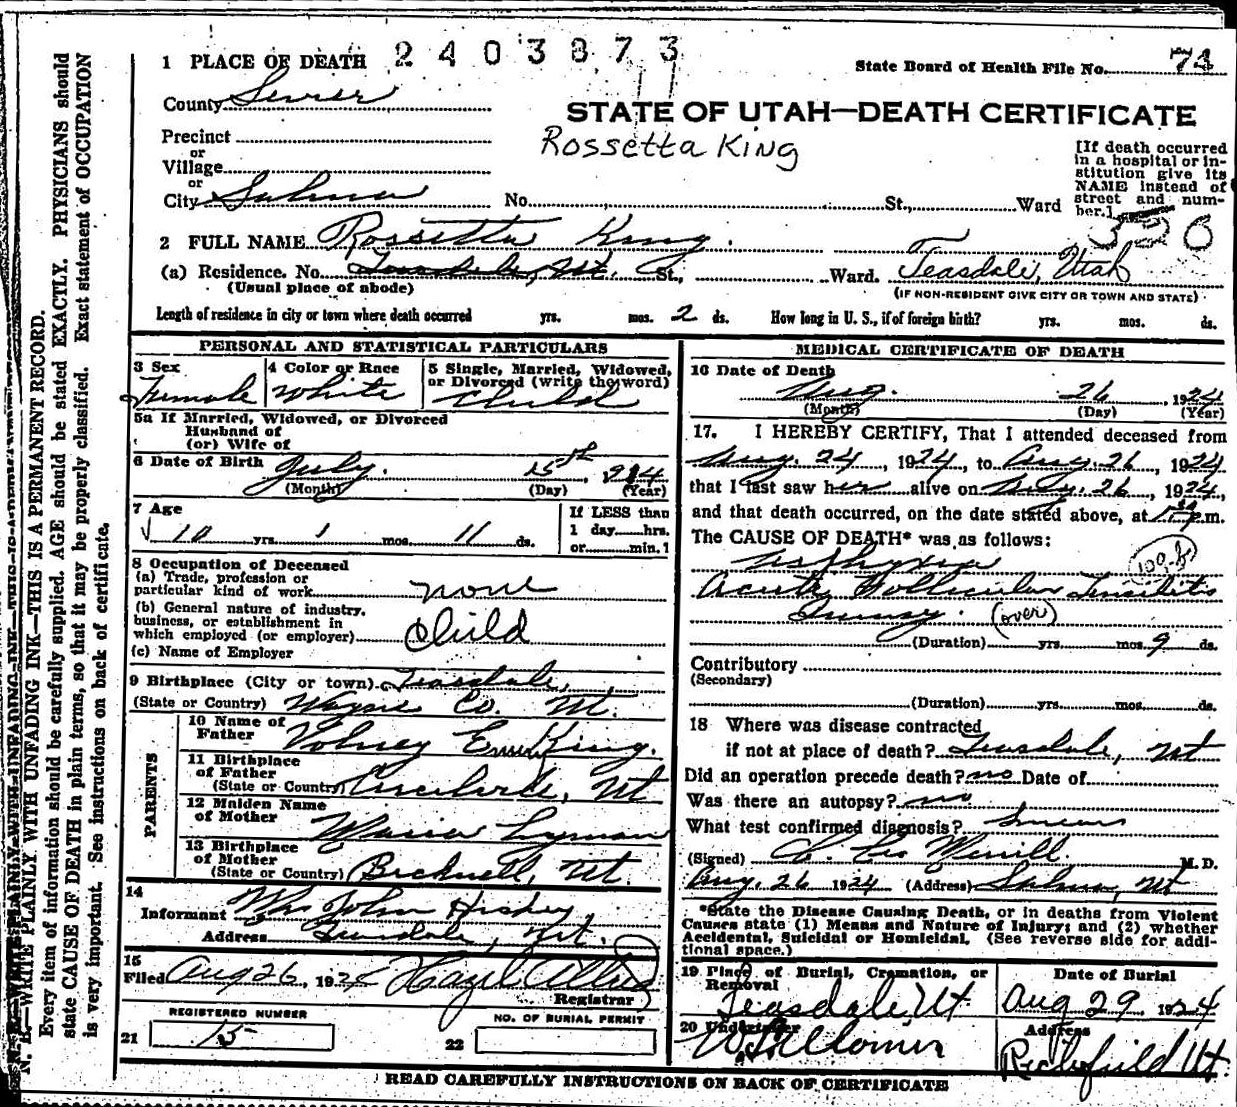 1 PLACE OF DEATH 2403873
State Board of Health File No. 73
County Sevier
STATE OF UTAH—DEATH CERTIFICATE
Rossetta King
Precinct
or
Village
or
City Salina No. St., Ward
[If death occurred
in a hospital or in-
stitution give its
NAME instead of
street and num-
ber.]
2 FULL NAME Rossetta King.
(a) Residence. No. Teasdale, Ut. St., Ward. Teasdale, Utah
(Usual place of abode) (IF NON-RESIDENT GIVE CITY OR TOWN AND STATE)
Length of residence in city or town where death occurred yrs. mos. 2 ds. How long in U. S., if of foreign birth? yrs. mos. ds.
PERSONAL AND STATISTICAL PARTICULARS
3 Sex Female
4 Color or Race White
5 Single, Married, Widowed,
or Divorced (write the word)
Child
5a If Married, Widowed, or Divorced
Husband of
(or) Wife of
6 Date of Birth July. 15th, 914
(Month) (Day) (Year)
7 Age
10 yrs. 1 mos. 11 ds.
If LESS than
1 day hrs.
or min.?
8 Occupation of Deceased
(a) Trade, profession or
particular kind of work none
(b) General nature of industry,
business, or establishment in
which employed (or employer) Child
(c) Name of Employer
9 Birthplace (City or town) Teasdale,
(State or Country) Wayne Co. Ut.
PARENTS
10 Name of
Father Volney Emery King.
11 Birthplace
of Father
(State or Country) Ut
12 Maiden Name
of Mother Maria Lyman
13 Birthplace
of Mother
(State or Country) Bicknell, Ut.
14
Informant Mrs John Hiskey,
Address Teasdale, Ut.
15
Filed Aug 26, 1924 Hazel Allred
Registrar
REGISTERED NUMBER
21 15
NO. OF BURIAL PERMIT
22
MEDICAL CERTIFICATE OF DEATH
16 Date of Death
Aug. 26, 1924
(Month) (Day) (Year)
17. I HEREBY CERTIFY, That I attended deceased from
Aug. 24, 1924, to Aug. 26, 1924
that I last saw her alive on Aug. 26, 1924,
and that death occurred, on the date stated above, at p.m.
The CAUSE OF DEATH* was as follows:
Asphyxia
Acute Follicular Tonsilitis
Quinsy. (over)
(Duration) yrs. mos. 9 ds.
Contributory
(Secondary)
(Duration) yrs. mos. ds.
18 Where was disease contracted
if not at place of death? Teasdale, Ut
Did an operation precede death? no Date of
Was there an autopsy? no
What test confirmed diagnosis? Smear
(Signed) Merrill. M.D.
Aug. 26 1924 (Address) Salina, Ut
*State the Disease Causing Death, or in deaths from Violent
Causes state (1) Means and Nature of Injury; and (2) whether
Accidental, Suicidal or Homicidal. (See reverse side for addi-
tional space.)
19 Place of Burial, Cremation, or
Removal
Teasdale Ut
Date of Burial
Aug 29 1924
20 Undertaker
Address
Richfield Ut.
READ CAREFULLY INSTRUCTIONS ON BACK OF CERTIFICATE
N. B.—WRITE PLAINLY WITH UNFADING INK—THIS IS A PERMANENT RECORD.
Every item of information should be carefully supplied. AGE should be stated EXACTLY. PHYSICIANS should
state CAUSE OF DEATH in plain terms, so that it may be properly classified. Exact statement of OCCUPATION
is very important. See instructions on back of certificate.